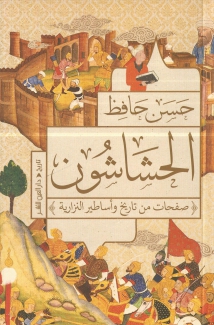 حسن حافظ
الحشاشون
صفحات من تاريخ وأساطير النزارية
تاريخ • دار العين للنشر